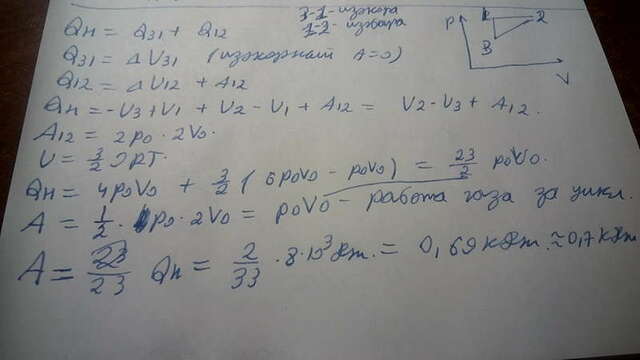 3-1-изохора
1-2-изобара
P
1
2
3
V
Qн = Q31 + Q12
Q31 = ΔU31 (изохорный A=0)
Q12 = ΔU12 + A12
Qн = -U3 + U1 + U2 - U1 + A12 = U2 - U3 + A12.
A12 = 2p0 · 2V0.
U = 3/2 νRT.
Qн = 4p0V0 + 3/2 (6p0V0 - p0V0) = 23/2 p0V0.
A = 1/2 · p0 · 2V0 = p0V0 - работа газа за цикл.
A = 2/23 Qн = 2/33 · 8·10³ Дж. = 0,69 кДж. ≈ 0,7 кДж